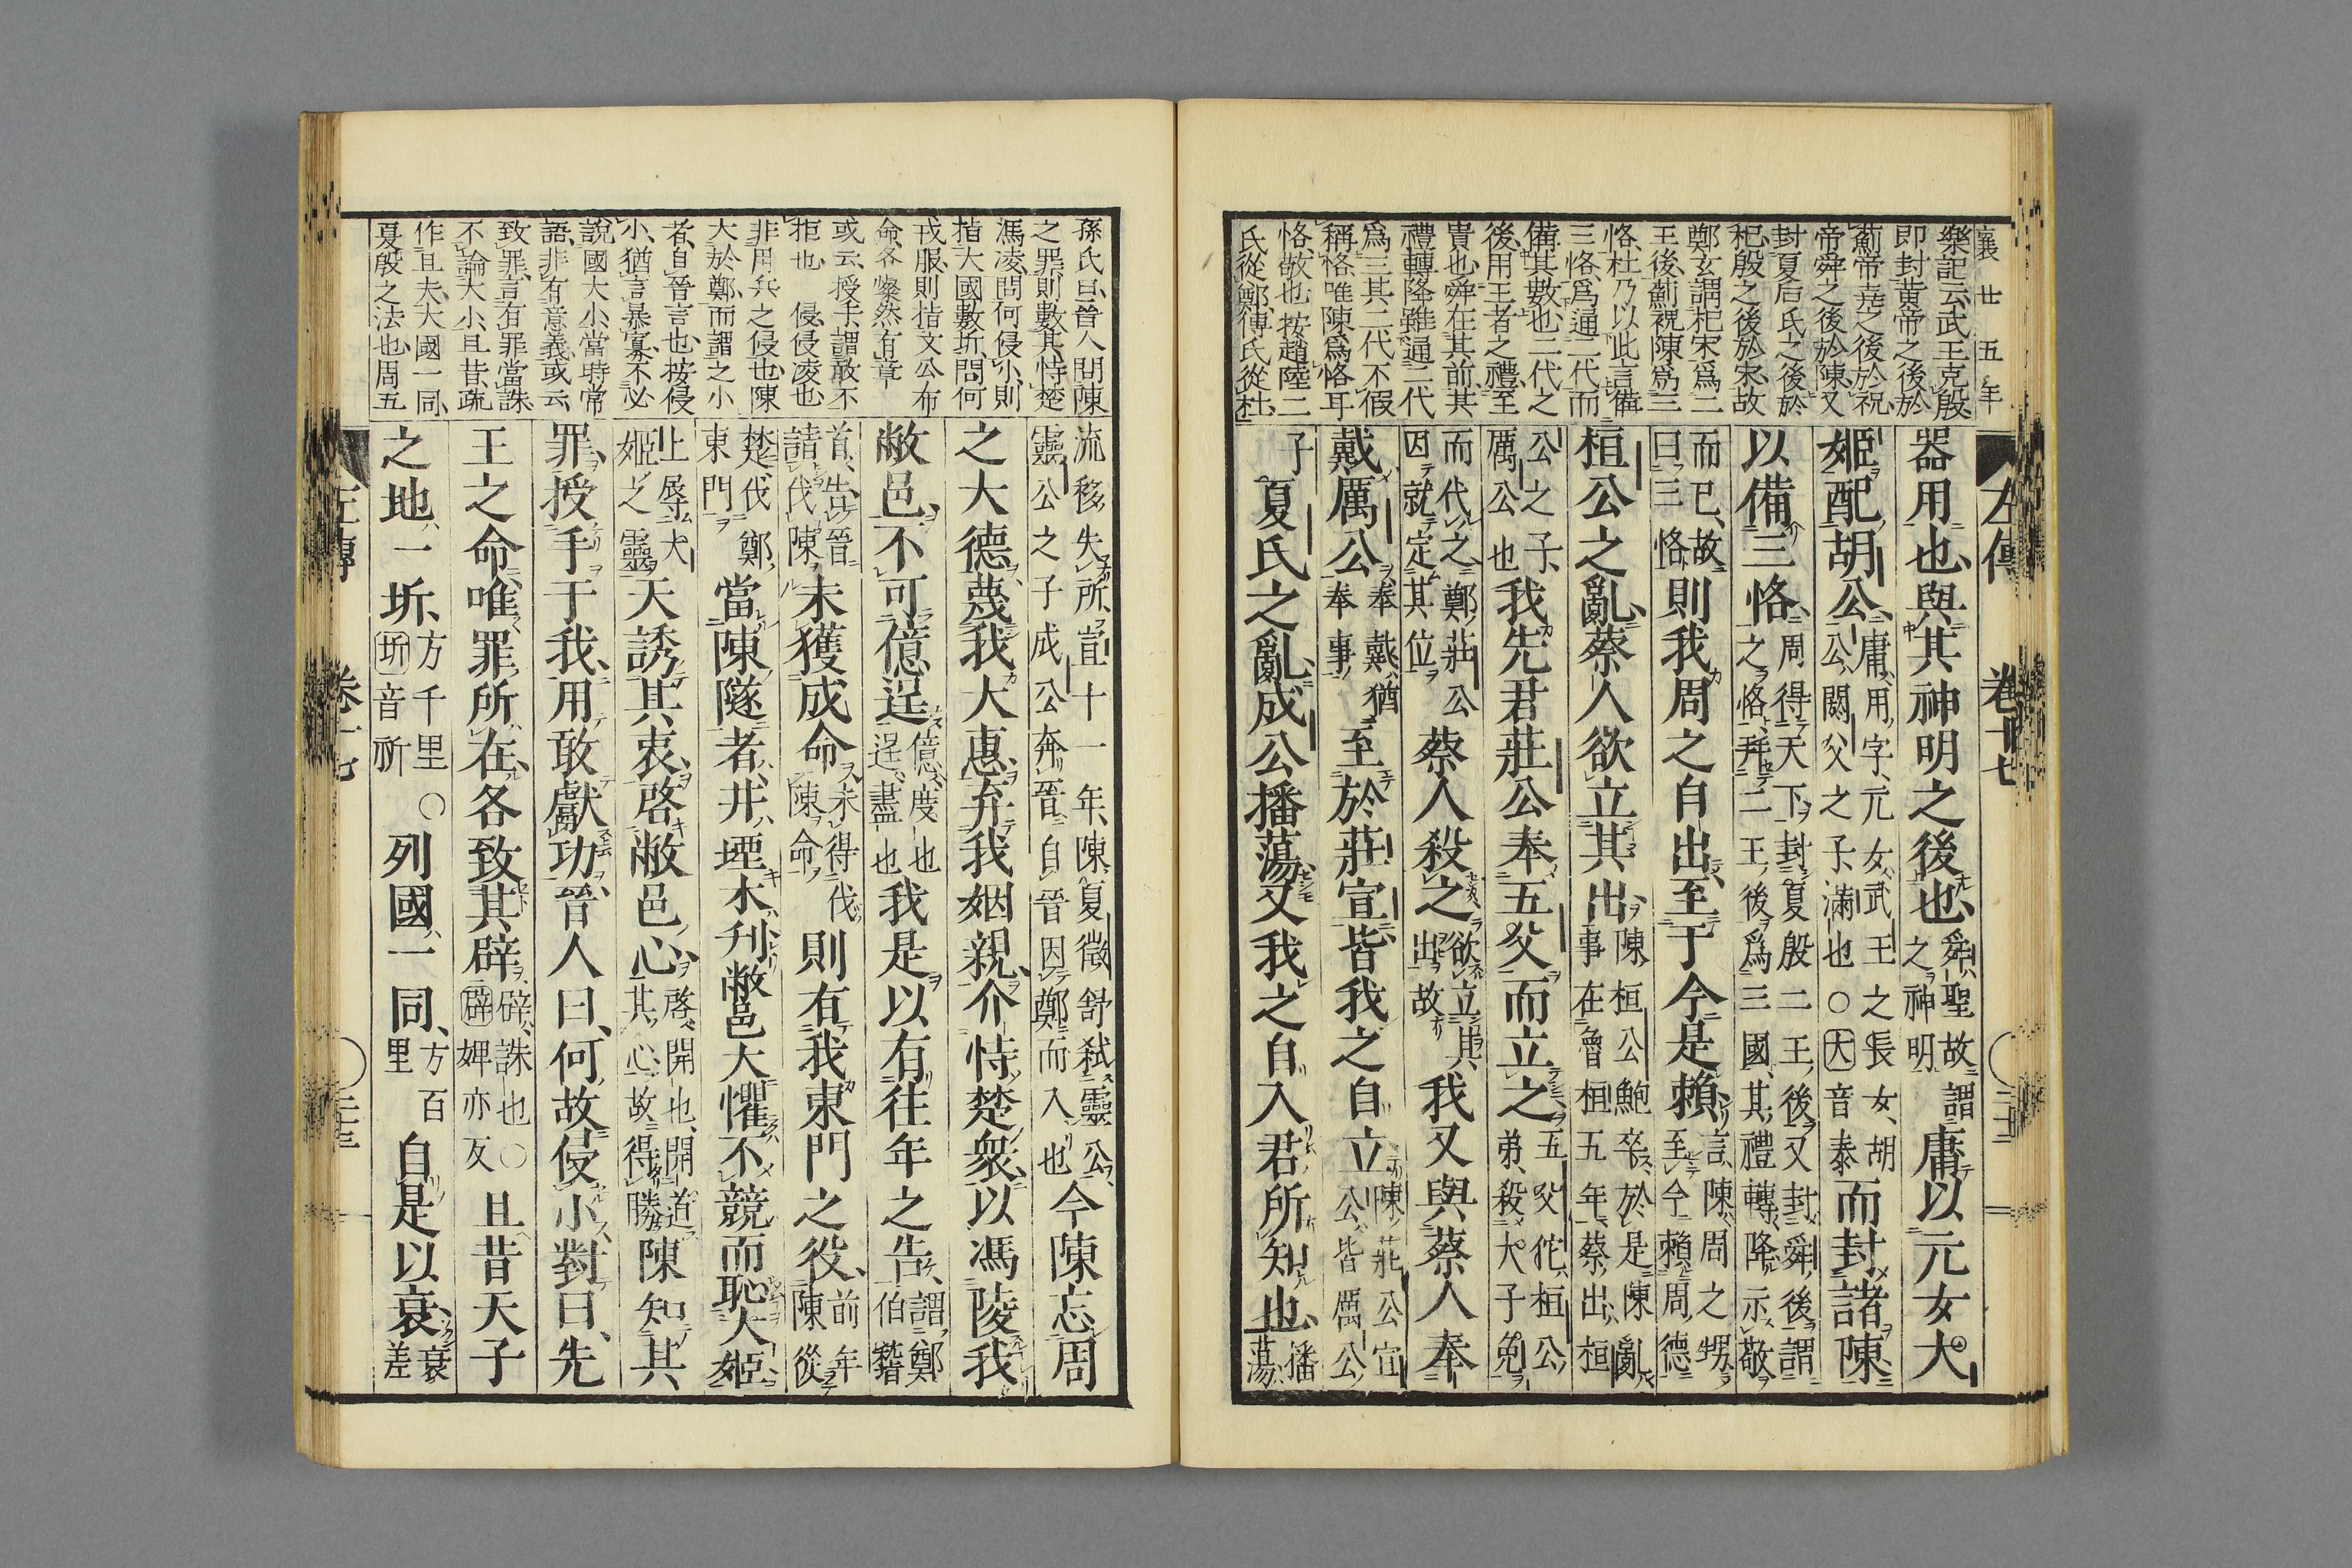 襄廿五年
樂記云武王克殷
即封黄帝之後於
薊帝堯之後於祝
帝舜之後於陳又
封夏后氏之後於
杞殷之後於宋故
鄭玄謂杞宋爲二
王後薊祝陳爲三
恪杜乃以此言備
三恪爲通二代而
備其數也二代之
後用王者之禮至
貴也舜在其前其
禮轉降雖通二代
爲三其二代不假
稱恪唯陳爲恪耳
恪敬也按趙陸二
氏從鄭傅氏從杜
左傳 卷十七
器用也與其神明之後也舜聖故謂之神明庸以元女大
姬配胡公庸用字元女武王之長女胡公閼父之子滿也○大音泰而封諸陳
以備三恪周得天下封夏殷二王後又封舜後謂之恪并二王後爲三國其禮轉降示敬
而已故曰三恪則我周之自出至于今是賴言陳周之甥至今賴周德
桓公之亂蔡人欲立其出陳桓公鮑卒於是陳亂事在魯桓五年蔡出桓
公之子厲公也我先君莊公奉五父而立之五父佗桓公弟殺大子免
而代之鄭莊公因就定其位蔡人殺之欲立其出故我又與蔡人奉
戴厲公奉戴猶奉事至於莊宣皆我之自立陳莊公宣公皆厲公
子夏氏之亂成公播蕩又我之自入君所知也播蕩
孫氏曰晉人問陳
之罪則數其恃楚
馮凌問何侵小則
指大國數圻問何
戎服則指文公布
命各燦然有章
或云授手謂敢不
拒也 侵侵凌也
非用兵之侵也陳
大於鄭而謂之小
者自晉言也按侵
小猶言暴寡不必
說國大小當時常
語非有意義或云
致罪言有罪當誅
不論大小且昔疏
作且夫大國一同
夏殷之法也周五
流移失所宣十一年陳夏徵舒弑靈公靈公之子成公奔晉自晉因鄭而入也今陳忘周
之大德蔑我大惠弃我姻親介恃楚衆以馮陵我
敝邑不可億逞億度也逞盡也我是以有往年之告謂鄭伯稽
首告晉請伐陳未獲成命未得伐陳命則有我東門之役前年陳從
楚伐鄭東門當陳隧者井堙木刋敝邑大懼不競而恥大姬
上辱大姬之靈天誘其衷啓敝邑心啓開也開道其心故得勝陳知其
罪授手于我用敢獻功晉人曰何故侵小對曰先
王之命唯罪所在各致其辟辟誅也○辟婢亦反且昔天子
之地一圻方千里○圻音祈列國一同方百里自是以衰衰差